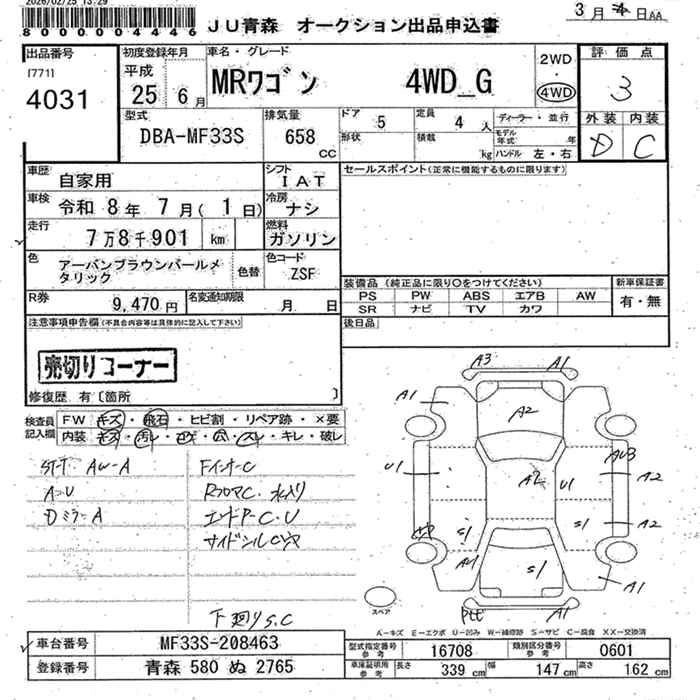 2026/02/25 13:29
8000004446
JU青森 オークション出品申込書
3月4日AA
出品番号
[771]
4031
初度登録年月
平成
25 6月
車名・グレード
MRワゴン 4WD_G
2WD
・
4WD
評価点
3
外装 内装
D C
型式
DBA-MF33S
排気量
658
cc
ドア 5
形状
定員 4 人
積載 kg
ディーラー・並行
モデル年式 年
ハンドル 左・右
車歴
自家用
シフト
IAT
セールスポイント(正常に機能するものに限ります)
車検
令和 8年 7月( 1日)
冷房
ナシ
走行
7万8千901 km
燃料
ガソリン
色
アーバンブラウンパールメタリック
色替
色コード
ZSF
装備品(純正品に限り○をつけてください)
PS PW ABS エアB AW
SR ナビ TV カワ
新車保証書
有・無
R券
9,470円
名変通知期限
月 日
後日品
注意事項申告欄(不具合内容等は具体的に記入して下さい)
売切りコーナー
修復歴 有〔箇所 〕
検査員
記入欄
FW キズ・飛石・ヒビ割・リペア跡・×要
内装 キズ・汚レ・コゲ・穴・スレ・キレ・破レ
ST-T AW-A
A-U
DミラーA
FインナーC
RフロアC.水入り
エンドP-C.U
下廻りS.C
A3
A1
A1
A2
U1
A2
U1
A2
S1
S1
A2
S1
A1
A1
スペア
A-キズ E-エクボ U-凹み W-補修跡 S-サビ C-腐食 XX-交換済
車台番号
MF33S-208463
登録番号
青森 580 ぬ 2765
型式指定番号
参考
16708
類別区分番号
参考
0601
車庫証明用
参考
長さ 339 cm 幅 147 cm 高さ 162 cm